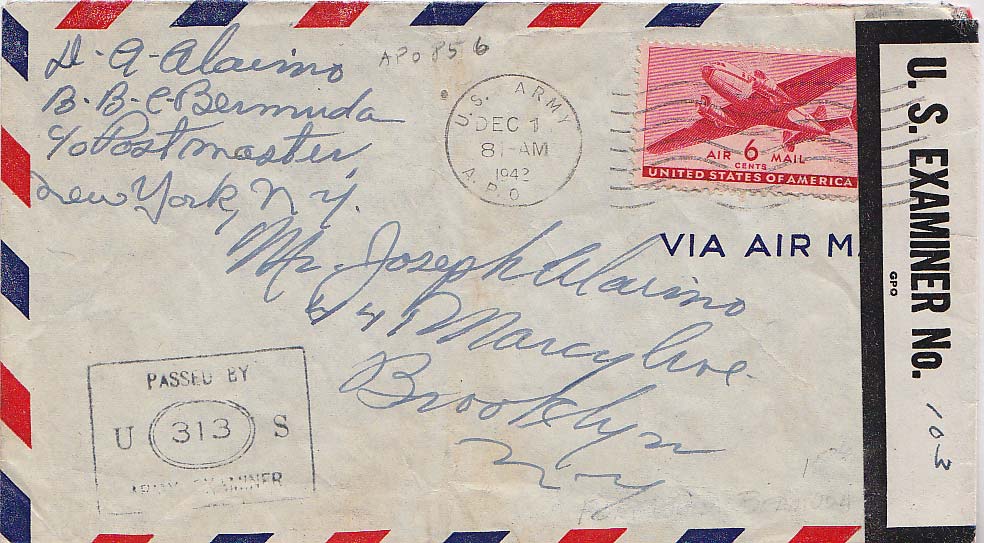 D. A. Alaimo
B. B. C. Bermuda
c/o Postmaster
New York, N.Y.
APO 856
U.S. ARMY
DEC 1
8 - AM
1942
A.P.O
AIR 6 MAIL
CENTS
UNITED STATES OF AMERICA
VIA AIR MA
Mr. Joseph Alaimo
441 Marcy Ave.
Brooklyn
N.Y
PASSED BY
U 313 S
ARMY EXAMINER
U. S. EXAMINER No. 103
GPO